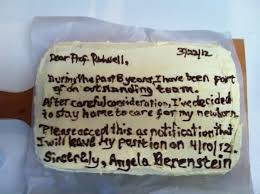 Dear Prof. Rudwell, 3/22/12
During the past 8 years, I have been part
of an outstanding team.
After careful consideration, I've decided
to stay home to care for my newborn.
Please accept this as notification that
I will leave my position on 4/10/12.
Sincerely, Angela Berenstein